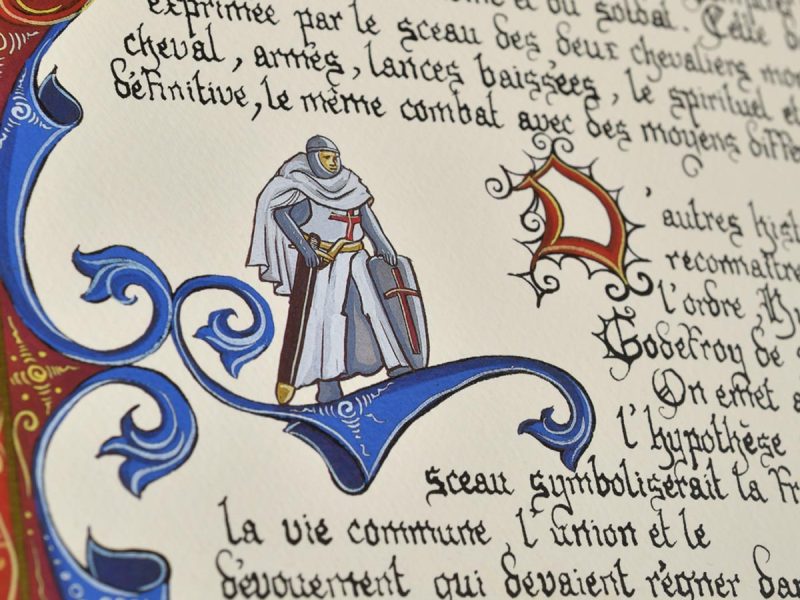 et du soldat. Cette
exprimée par le sceau des deux chevaliers
cheval, armés, lances baissées, le spirituel et
définitive, le même combat avec des moyens
D'autres
reconnaître
l'ordre,
Godefroy de
On émet
l'hypothèse
sceau symboliserait la
la vie commune, l'union et le
dévouement qui devaient régner